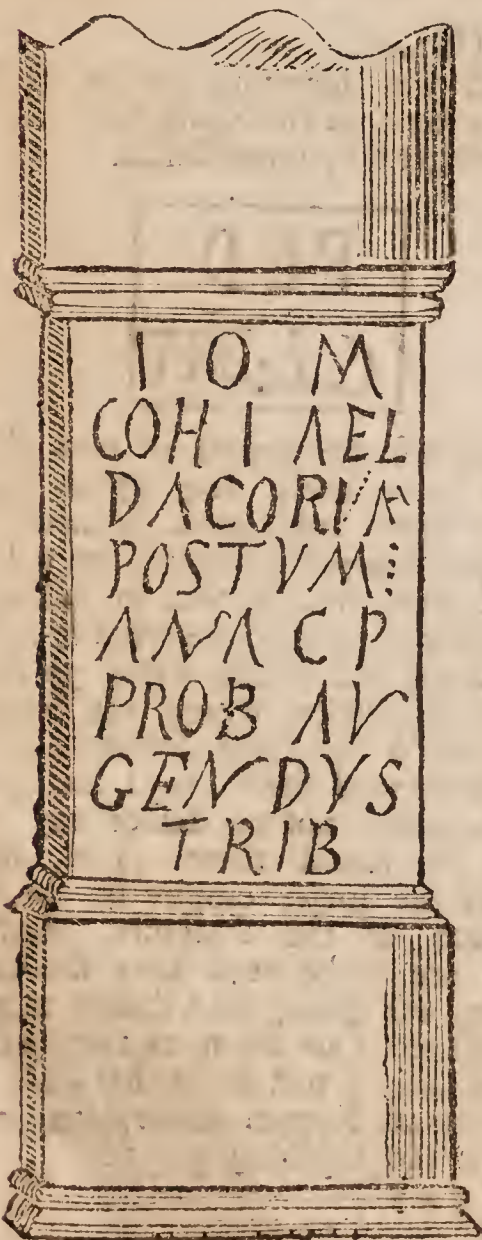 I O M
COH I AEL
DACORVM
POSTVM
ANA C P
PROB AV
GENDVS
TRIB